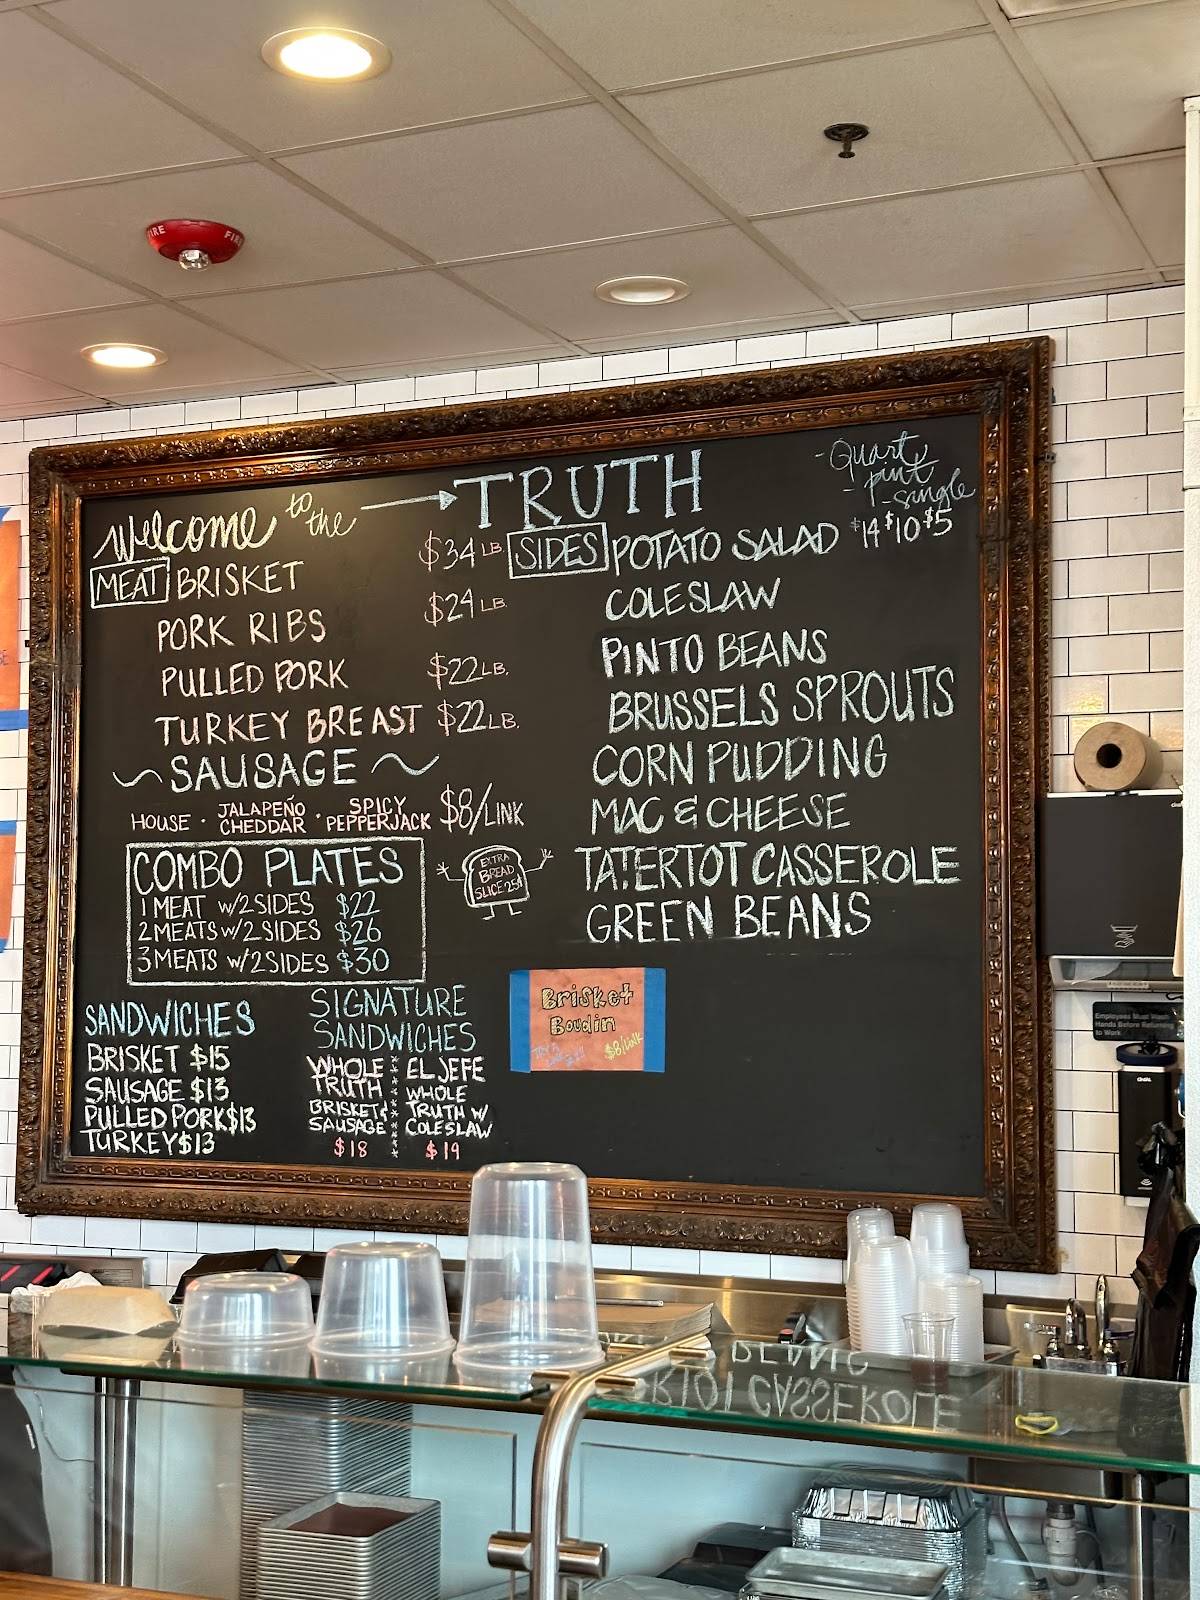 FIRE FIRE
Welcome to the TRUTH
MEAT BRISKET $34 LB.
PORK RIBS $24 LB.
PULLED PORK $22 LB.
TURKEY BREAST $22 LB.
SAUSAGE
HOUSE · JALAPEÑO CHEDDAR · SPICY PEPPERJACK $8/LINK
COMBO PLATES
1 MEAT W/2 SIDES $22
2 MEATS W/2 SIDES $26
3 MEATS W/2 SIDES $30
EXTRA
BREAD
SLICE 25¢
SANDWICHES
BRISKET $15
SAUSAGE $13
PULLED PORK $13
TURKEY $13
SIGNATURE
SANDWICHES
WHOLE
TRUTH
BRISKET &
SAUSAGE
$18
EL JEFE
WHOLE
TRUTH W/
COLESLAW
$19
- Quart
- pint
- single
$14 $10 $5
SIDES POTATO SALAD
COLESLAW
PINTO BEANS
BRUSSELS SPROUTS
CORN PUDDING
MAC & CHEESE
TATERTOT CASSEROLE
GREEN BEANS
Brisket
Boudin
$8/LINK
Employees Must Wash
Hands Before Returning
to Work